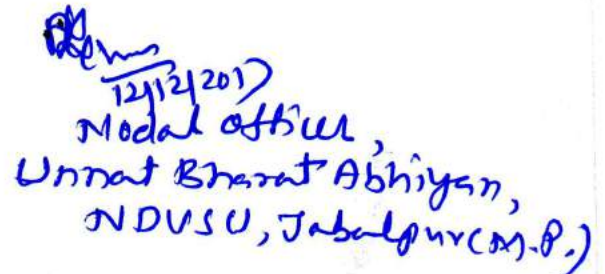 12/12/2017
Nodal Officer,
Unnat Bharat Abhiyan,
NDVSU, Jabalpur (M.P.)